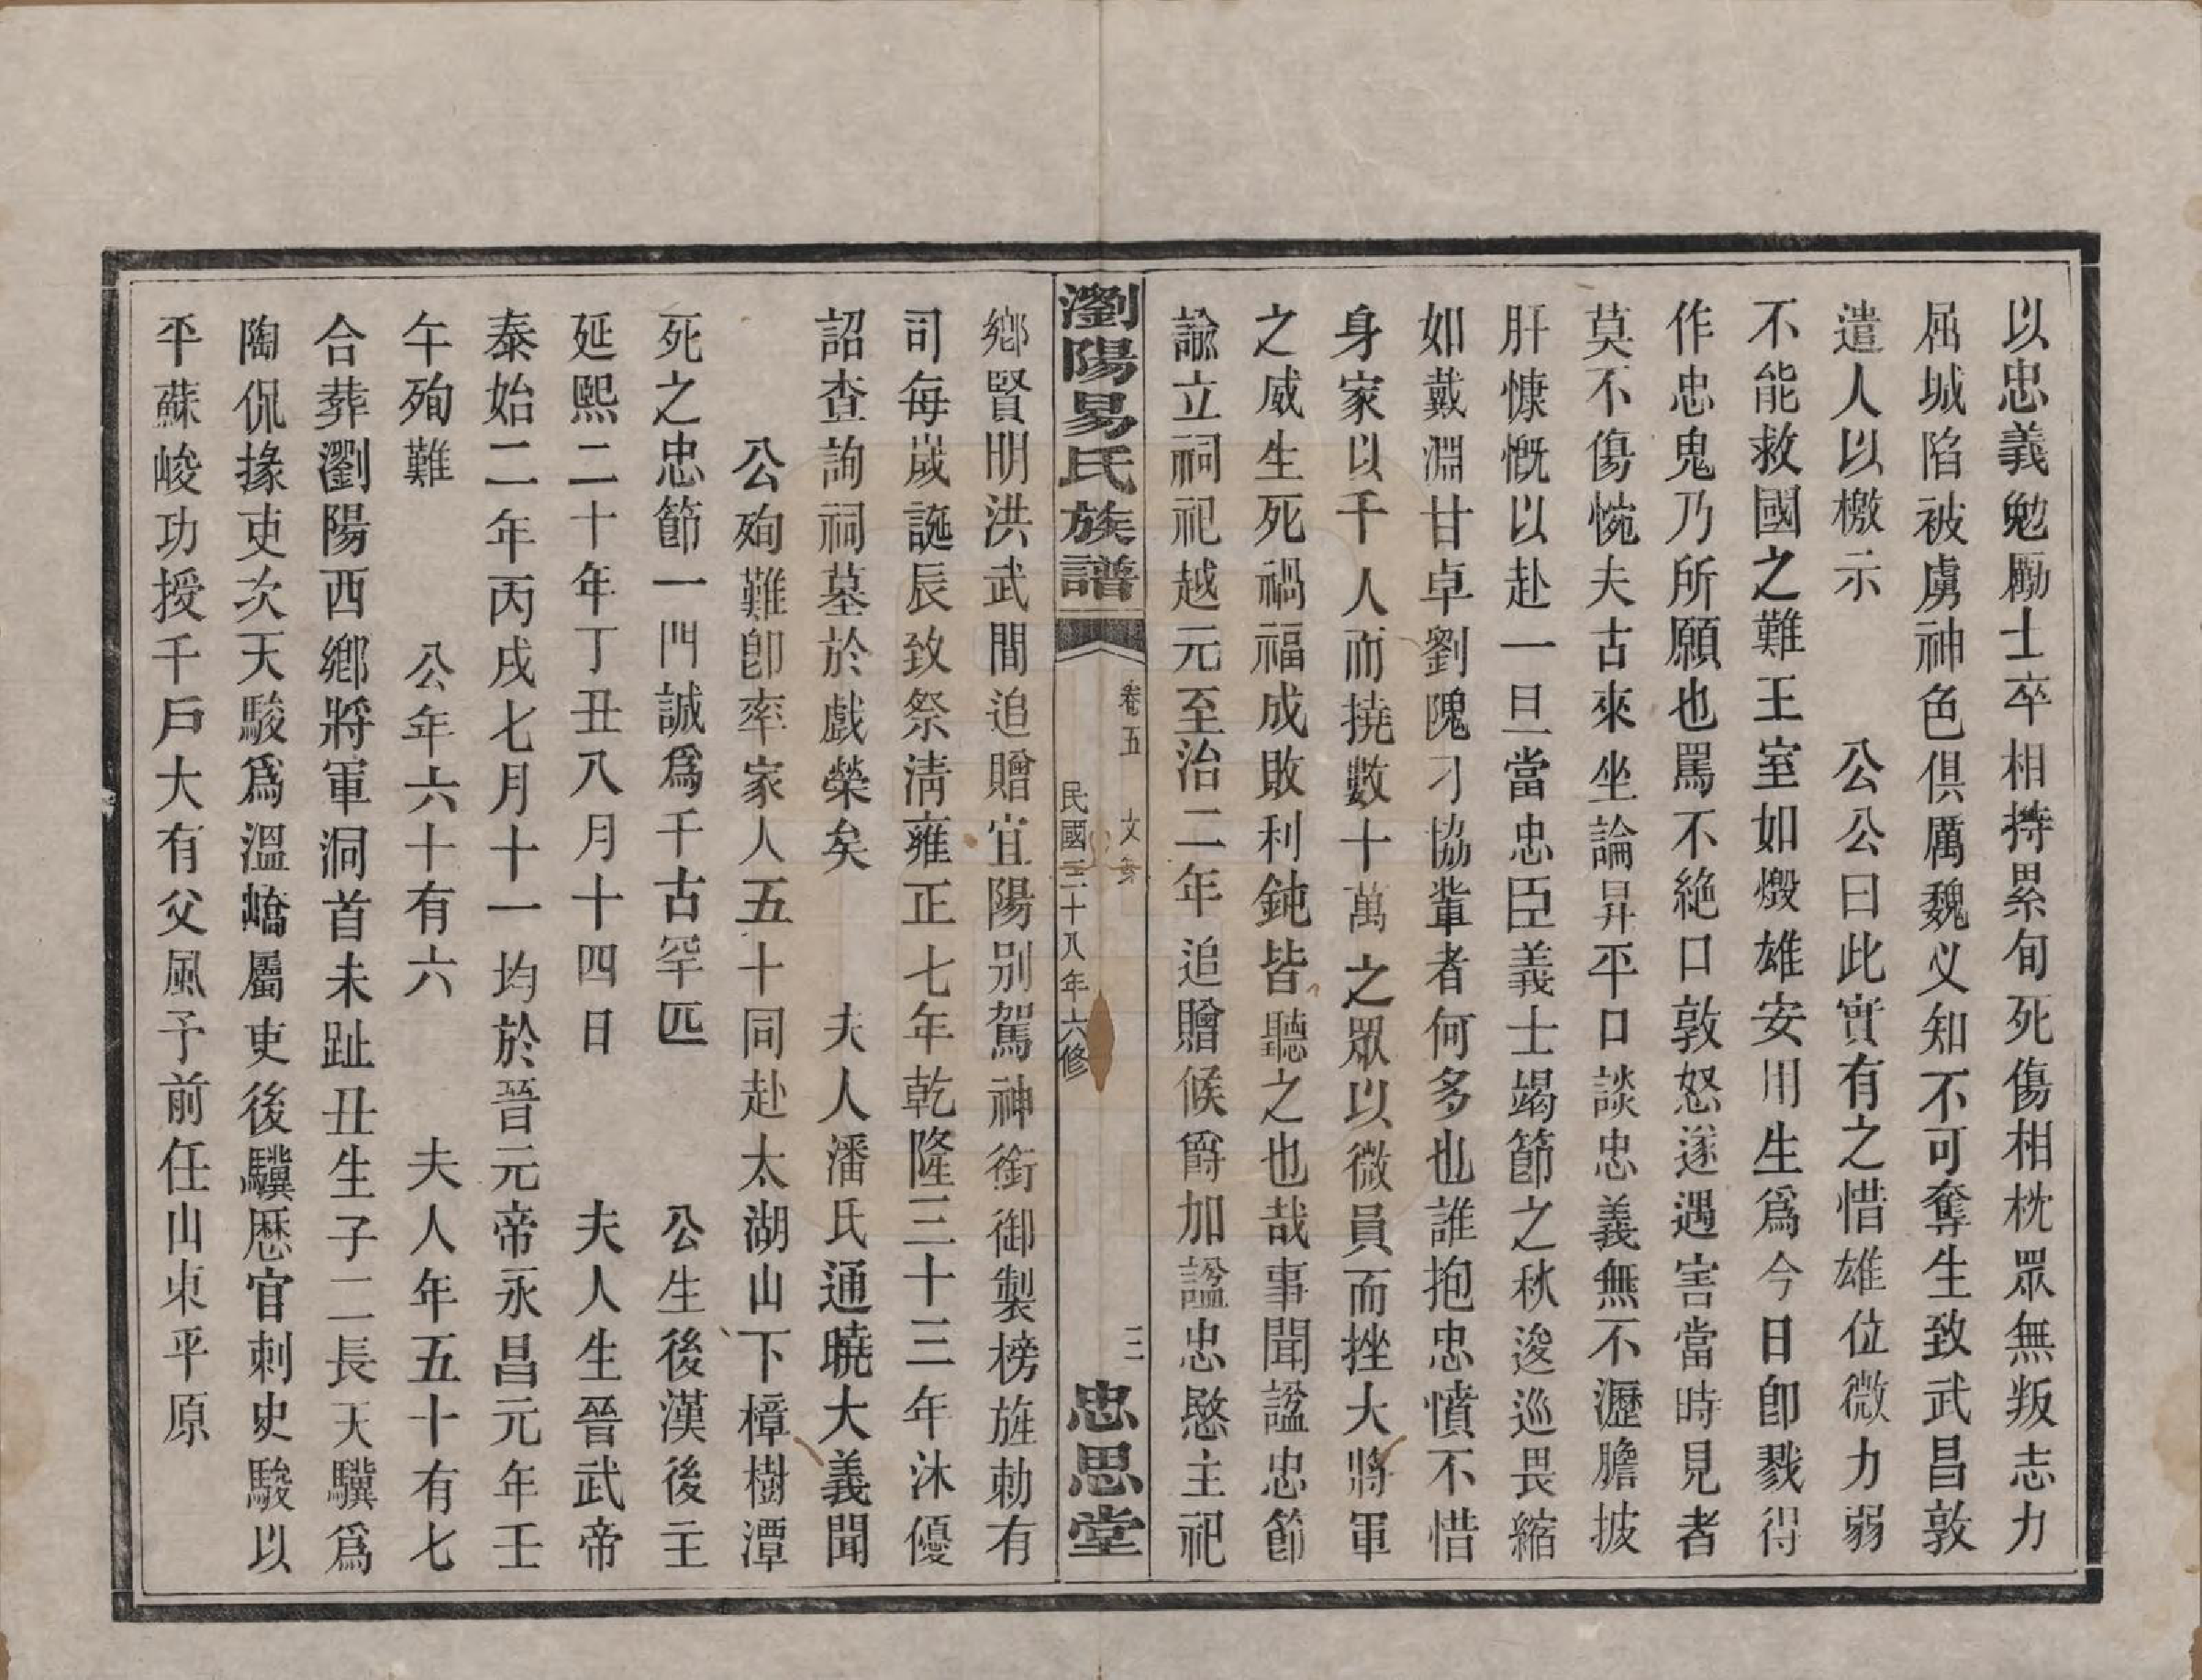 以忠義勉勵士卒相持累旬死傷相枕眾無叛志力
屈城陷被虜神色俱厲魏乂知不可奪生致武昌敦
遣人以檄示　公公曰此實有之惜雄位微力弱
不能救國之難王室如燬雄安用生爲今日卽戮得
作忠鬼乃所願也罵不絕口敦怒遂遇害當時見者
莫不傷惋夫古來坐論昇平口談忠義無不瀝膽披
肝慷慨以赴一旦當忠臣義士竭節之秋逡巡畏縮
如戴淵甘卓劉隗刁協輩者何多也誰抱忠憤不惜
身家以千人而撓數十萬之眾以微員而挫大將軍
之威生死禍福成敗利鈍皆聽之也哉事聞諡忠節
諭立祠祀越元至治二年追贈候爵加諡忠愍主祀
瀏陽易氏族譜
卷五　文
民國三十八年六修
三
忠思堂
鄉賢明洪武間追贈宜陽別駕神銜御製榜旌勅有
司每歲誕辰致祭淸雍正七年乾隆三十三年沐優
詔查詢祠墓於戲榮矣　夫人潘氏通曉大義聞
公殉難卽率家人五十同赴太湖山下樟樹潭
死之忠節一門誠爲千古罕匹　公生後漢後主
延熙二十年丁丑八月十四日　夫人生晉武帝
泰始二年丙戌七月十一均於晉元帝永昌元年壬
午殉難　公年六十有六　夫人年五十有七
合葬瀏陽西鄉將軍洞首未趾丑生子二長天驥爲
陶侃掾吏次天駿爲溫嶠屬吏後驥歷官刺史駿以
平蘇峻功授千戶大有父風予前任山東平原